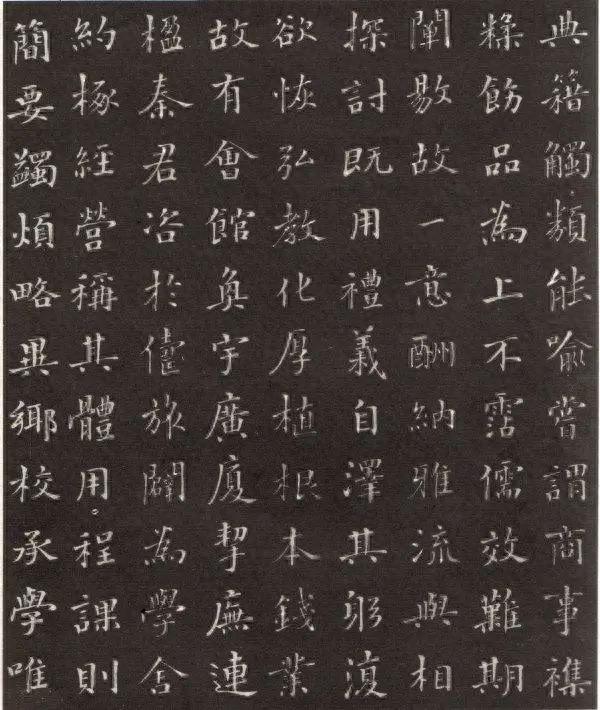 典籍觸類能喻嘗謂商事襍
糅飭品為上不霑儒效難期
闡敭故一意酬納雅流與相
探討既用禮義自澤其躬復
欲恢弘教化厚植根本錢業
故有會館奐宇廣廈挈廡連
楹秦君咨於儔旅闢為學舍
約椓經營稱其體用。程課則
簡要蠲煩略異鄉校承學唯